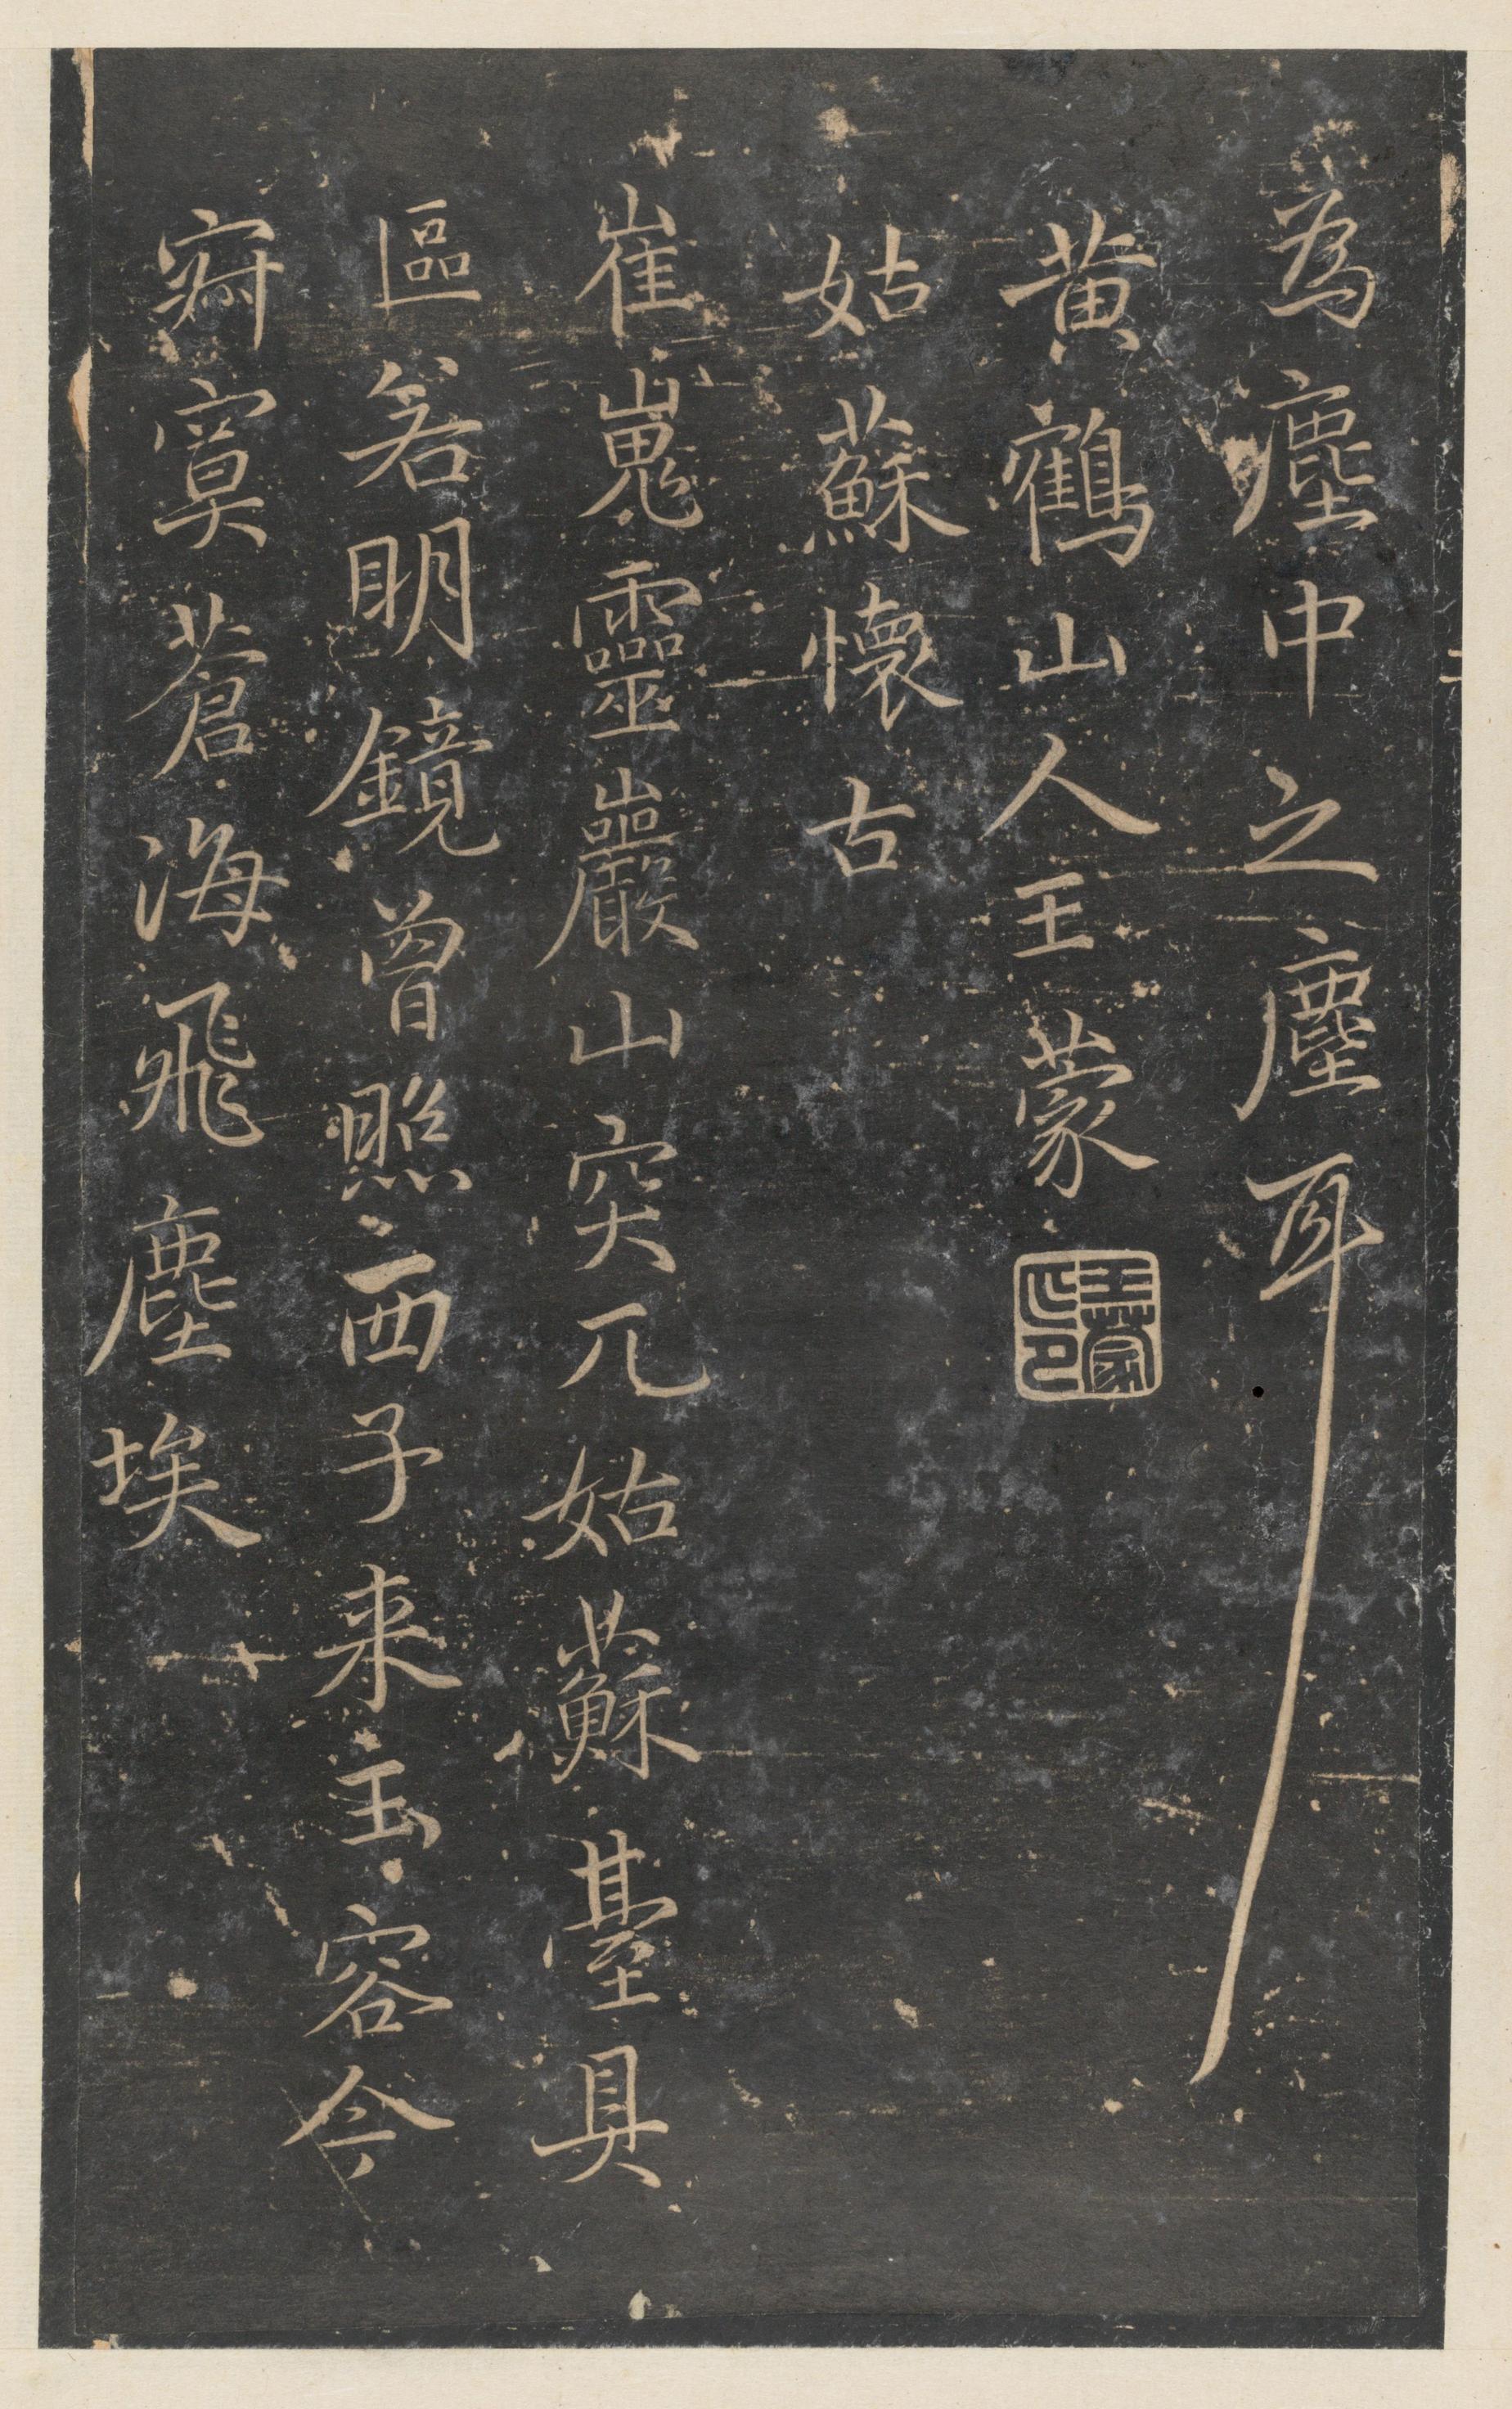 為塵中之塵耳
黃鶴山人王蒙 王蒙印
姑蘇懷古
崔嵬靈巖山突兀姑蘇臺具
區若明鏡曾照西子来玉容今
寂寞蒼海飛塵埃